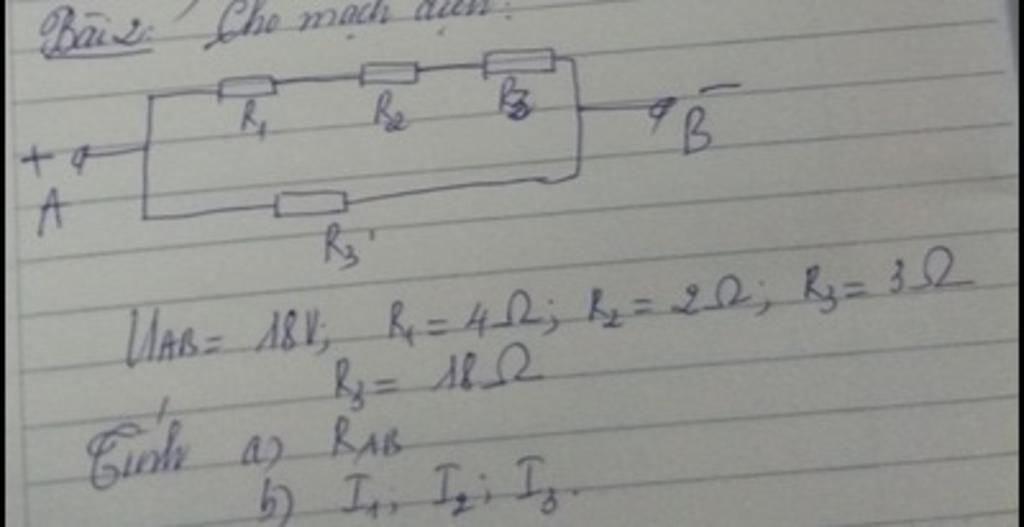 Bài 2: Cho mạch điện:
R₁ R₂ R₃
+ A
B −
R₃
U_AB = 18V; R₁ = 4Ω; R₂ = 2Ω; R₃ = 3Ω
R₃ = 18Ω
Tính a) R_AB
b) I₁; I₂; I₃.